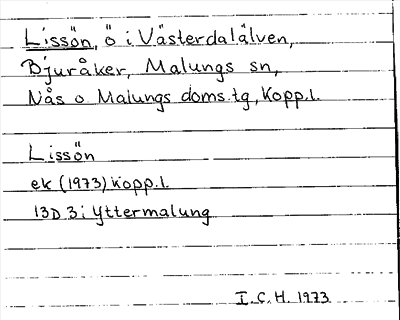 Lissön, ö i Västerdalälven,
Bjuråker, Malungs sn,
Nås o Malungs doms.tg, Kopp.l.
Lissön
ek (1973) Kopp.l.
13D 3i Yttermalung
I.C.H. 1973